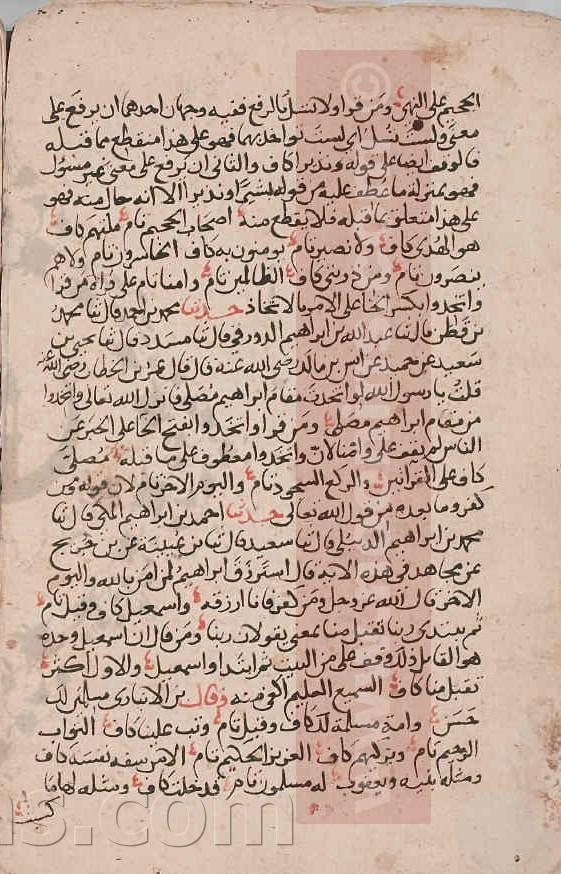 الجحيم على النهى ومن قرا ولا تسئل بالرفع ففيه وجهان احدهما ان يرفع على
معنى ولست تسئل اي لست تواخذ بهم فهو على هذا منقطع مما قبله
فالوقف ايضا على قوله ونذيرا كاف والثانى ان يرفع على معنى غير مسئول
فهو بمنزلة ما عطف عليه من قوله بشيرا ونذيرا الا انه حال منه فهو
على هذا متعلق بما قبله فلا يقطع منه اصحاب الجحيم تام ملتهم كاف
هو الهدى كاف ولا نصير تام يومنون به كاف الخاسرون تام ولا هم
ينصرون تام ومن ذريتي كاف الظالمين تام وامنا تام على قراة من قرا
واتخذوا بكسر الخا على الامر بالاتخاذ حدثنا محمد بن احمد قال ثنا محمد
بن قطن قال ثنا عبد الله بن ابراهيم الدورقي قال ثنا مسدد قال ثنا يحيى بن
سعيد عن حميد عن انس بن مالك رضى الله عنه قال قال عمر بن الخطاب رضى الله
قلت يا رسول الله لو اتخذت مقام ابراهيم مصلى فانزل الله تعالى واتخذوا
من مقام ابراهيم مصلى ومن قرا واتخذوا بفتح الخا على الخبر عن
الناس لم يقف على وامنا لان واتخذوا معطوف على ما قبله مصلى
كاف على القراتين والركع السجود تام واليوم الاخر تام لان قوله ومن
كفر وما بعده من قول الله تعالى حدثنا احمد بن ابراهيم المكي قال ثنا
محمد بن ابراهيم الديبلي قال ثنا سعيد قال ثنا بن عيينة عن بن جريج
عن مجاهد في هذه الاية قال استرزق ابراهيم لمن امن بالله واليوم
الاخر قال الله عز وجل ومن كفر فانا ارزقه واسمعيل كاف وقيل تام
ثم يبتدى ربنا تقبل منا بمعنى يقولان ربنا ومن قال ان اسمعيل وحده
هو القايل ذلك وقف على من البيت ثم ابتدا واسمعيل والاول اكثر
تقبل منا كاف السميع العليم اكفى منه وقال بن الانبارى مسلمين لك
حسن وامة مسلمة لك كاف وقيل تام وتب علينا كاف التواب
الرحيم تام ويزكيهم كاف العزيز الحكيم تام الا من سفه نفسه كاف
ومثله بنيه ويعقوب له مسلمون تام قد خلت كاف ومثله لها ما
كسبت